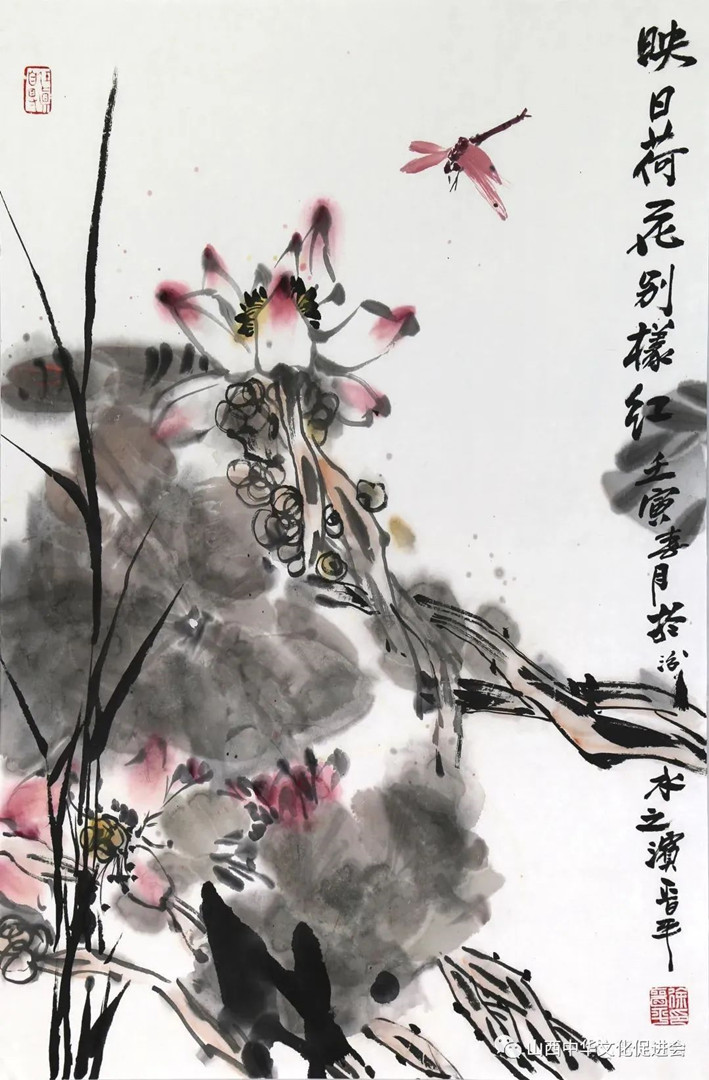 映日荷花别樣红
壬寅春月於汾水之濱晋平
山西中华文化促进会